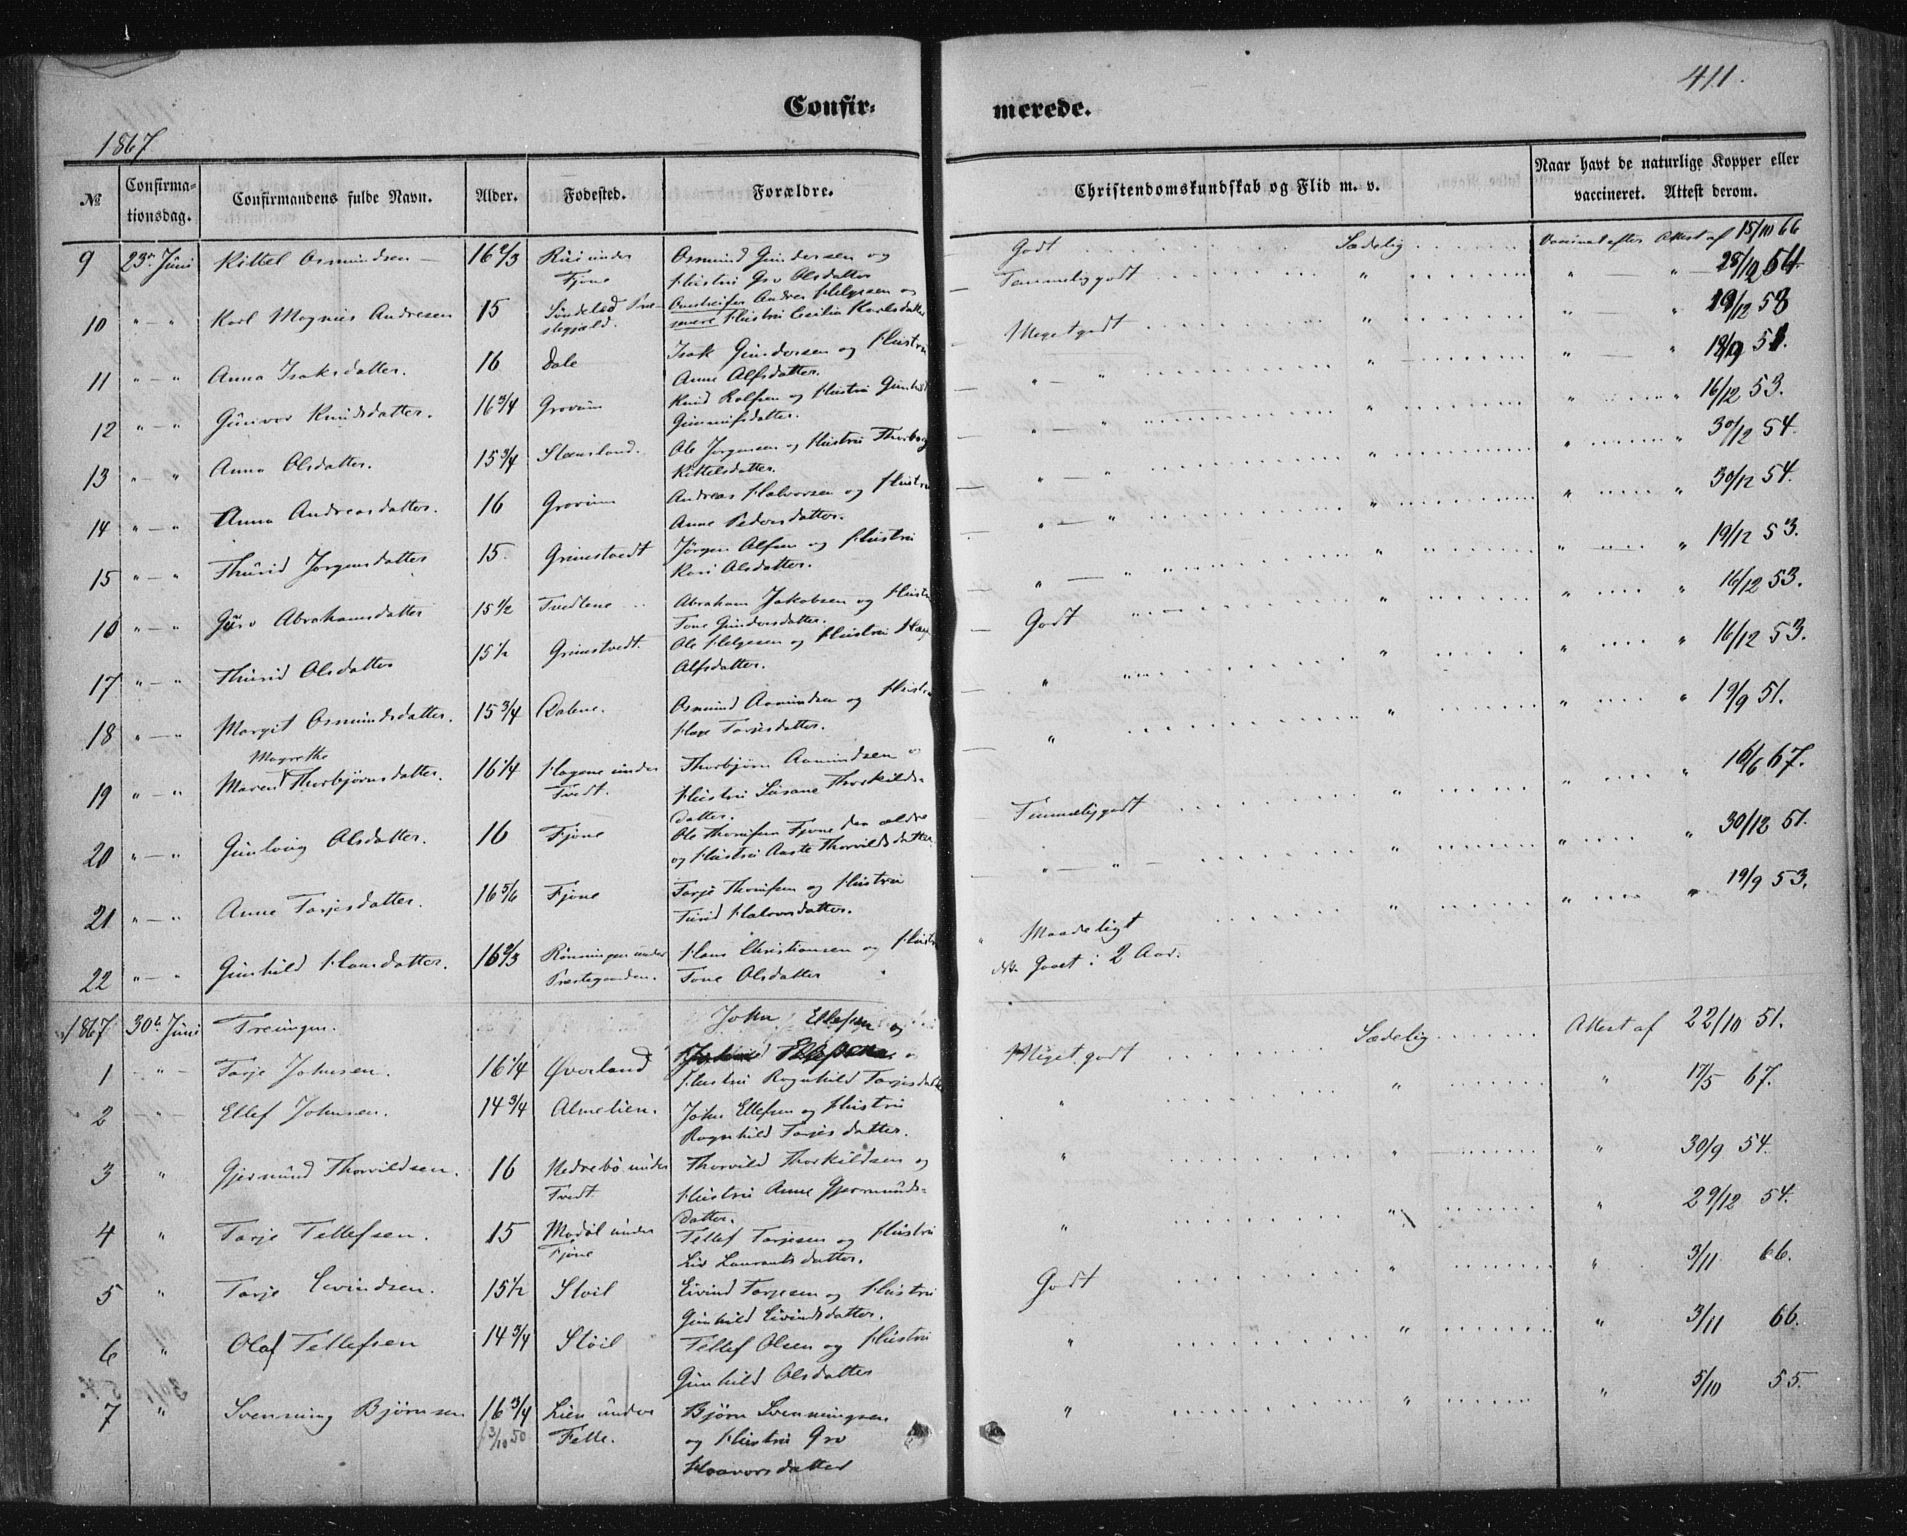 411.
Confir= merede.
1867
№ Confirma=tionsdag. Confirmandens fulde Navn. Alder. Fødested. Forældre. Christendomskundskab og Flid m. v. Naar havt de naturlige Kopper eller vaccineret. Attest derom.
9 23de Juni Kittel Osmundsen 16 2/3 under Fjone Osmund Gundersen og Hustru Gro Olsdatter Godt Sædelig Attest af 15/10 66
10 " — " Karl Magnus Andresen 15 Søndeled Præstegjæld. Andres Helgesen og Hustru Cecilia Karlsdatter Temmelig godt " " — "
11 " — " Anna Isaksdatter. 16 Dale Isak Gundersen og Hustru Anne Alfsdatter. Meget godt " " — " 19/12 53
12 " — " Gunvor Knudsdatter. 16 3/4 Grovum Knud Rolfsen og Hustru " — " " "
13 " — " Anna Olsdatter. 15 3/4 Steensland. Ole Jørgensen og Hustru Thorborg Kittelsdatter. " — " " " " 16/12 53.
14 " — " Anna Andreasdatter. 16 Grovum Andreas Halvorsen og Hustru Anne Pedersdatter. " " " " 30/12 54.
15 " — " Thurid Jørgensdatter 15. Grimstvedt Jørgen Alfsen og Hustru Kari Olsdatter. " — " " " " 30/12 54.
16 " — " Guro Abrahamsdatter 15 1/2 Tvedtene Abraham Jakobsen og Hustru Tone Gundersdatter. " — " " " " 19/12 53.
17 " — " Thurid Olsdatter 15 1/2 Grimstvedt. Ole Helgesen og Hustru Alfsdatter. Godt " " " 16/12 53.
18 " — " Margit Osmundsdatter. 15 3/4 Dalene. Osmund Aamundsen og Hustru Tarjesdatter. " " " " 16/12 53.
19 " — " Maren Magrethe Thorbjørnsdatter. 16 1/4 Hagene under Tvedt. Thorbjørn Aamundsen og Hustru Susane Thorkildsdatter. " " " 19/9 51.
20 " — " Gunlaug Olsdatter. 16 Fjone Ole Thomsen Fjone den ældre og Hustru Aaste Thorvildsdatter Temmelig godt " " 16/6 67.
21 " — " Anne Tarjesdatter. 16 5/6 Fjone Tarje Thomsen og Hustru Turid Halvorsdatter. " — " — " " 30/12 51.
22 " — " Gunhild Hansdatter. 16 2/3 Rønningen under Præstegaarden. Hans Christiansen og Hustru Tone Olsdatter Maadeligt " " " 19/9 53.
Gaaet i 2 Aar.
1867 30te Juni Treungen.
John Ellefsen og
1 " Tarje Johnsen. 16 1/4 Øverland Hustru Ragnhild Tarjesdatter Meget godt Sædelig Attest af 22/10 51.
2 " Ellef Johnsen. 14 3/4 Almelien. John Ellefsen og Hustru Ragnhild Tarjesdatter. " " " 17/5 67.
3 " Gjermund Thorvildsen. 16 Nedrebø under Tvedt Thorvild Thorkildsen og Hustru Anne Gjermundsdatter. " " " 30/9 54.
4 " Tarje Tellefsen. 15 under Fjone Tellef Tarjesen og Hustru Liv Laurantsdatter. " " " 29/12 54.
5 " Tarje Eivindsen. 15 1/2 Støil Eivind Tarjesen og Hustru Gunhild Eivindsdatter. Godt " " 3/11 66.
6 " Olaf Tellefsen 14 3/4 Støil Tellef Olsen og Hustru Gunhild Olsdatter " " " 3/11 66.
7 " Svenning Bjørnsen 16 3/4 3/10 50 Lien under Felle. Bjørn Svenningsen og Hustru Gro Haavorsdatter " " " 5/10 55.